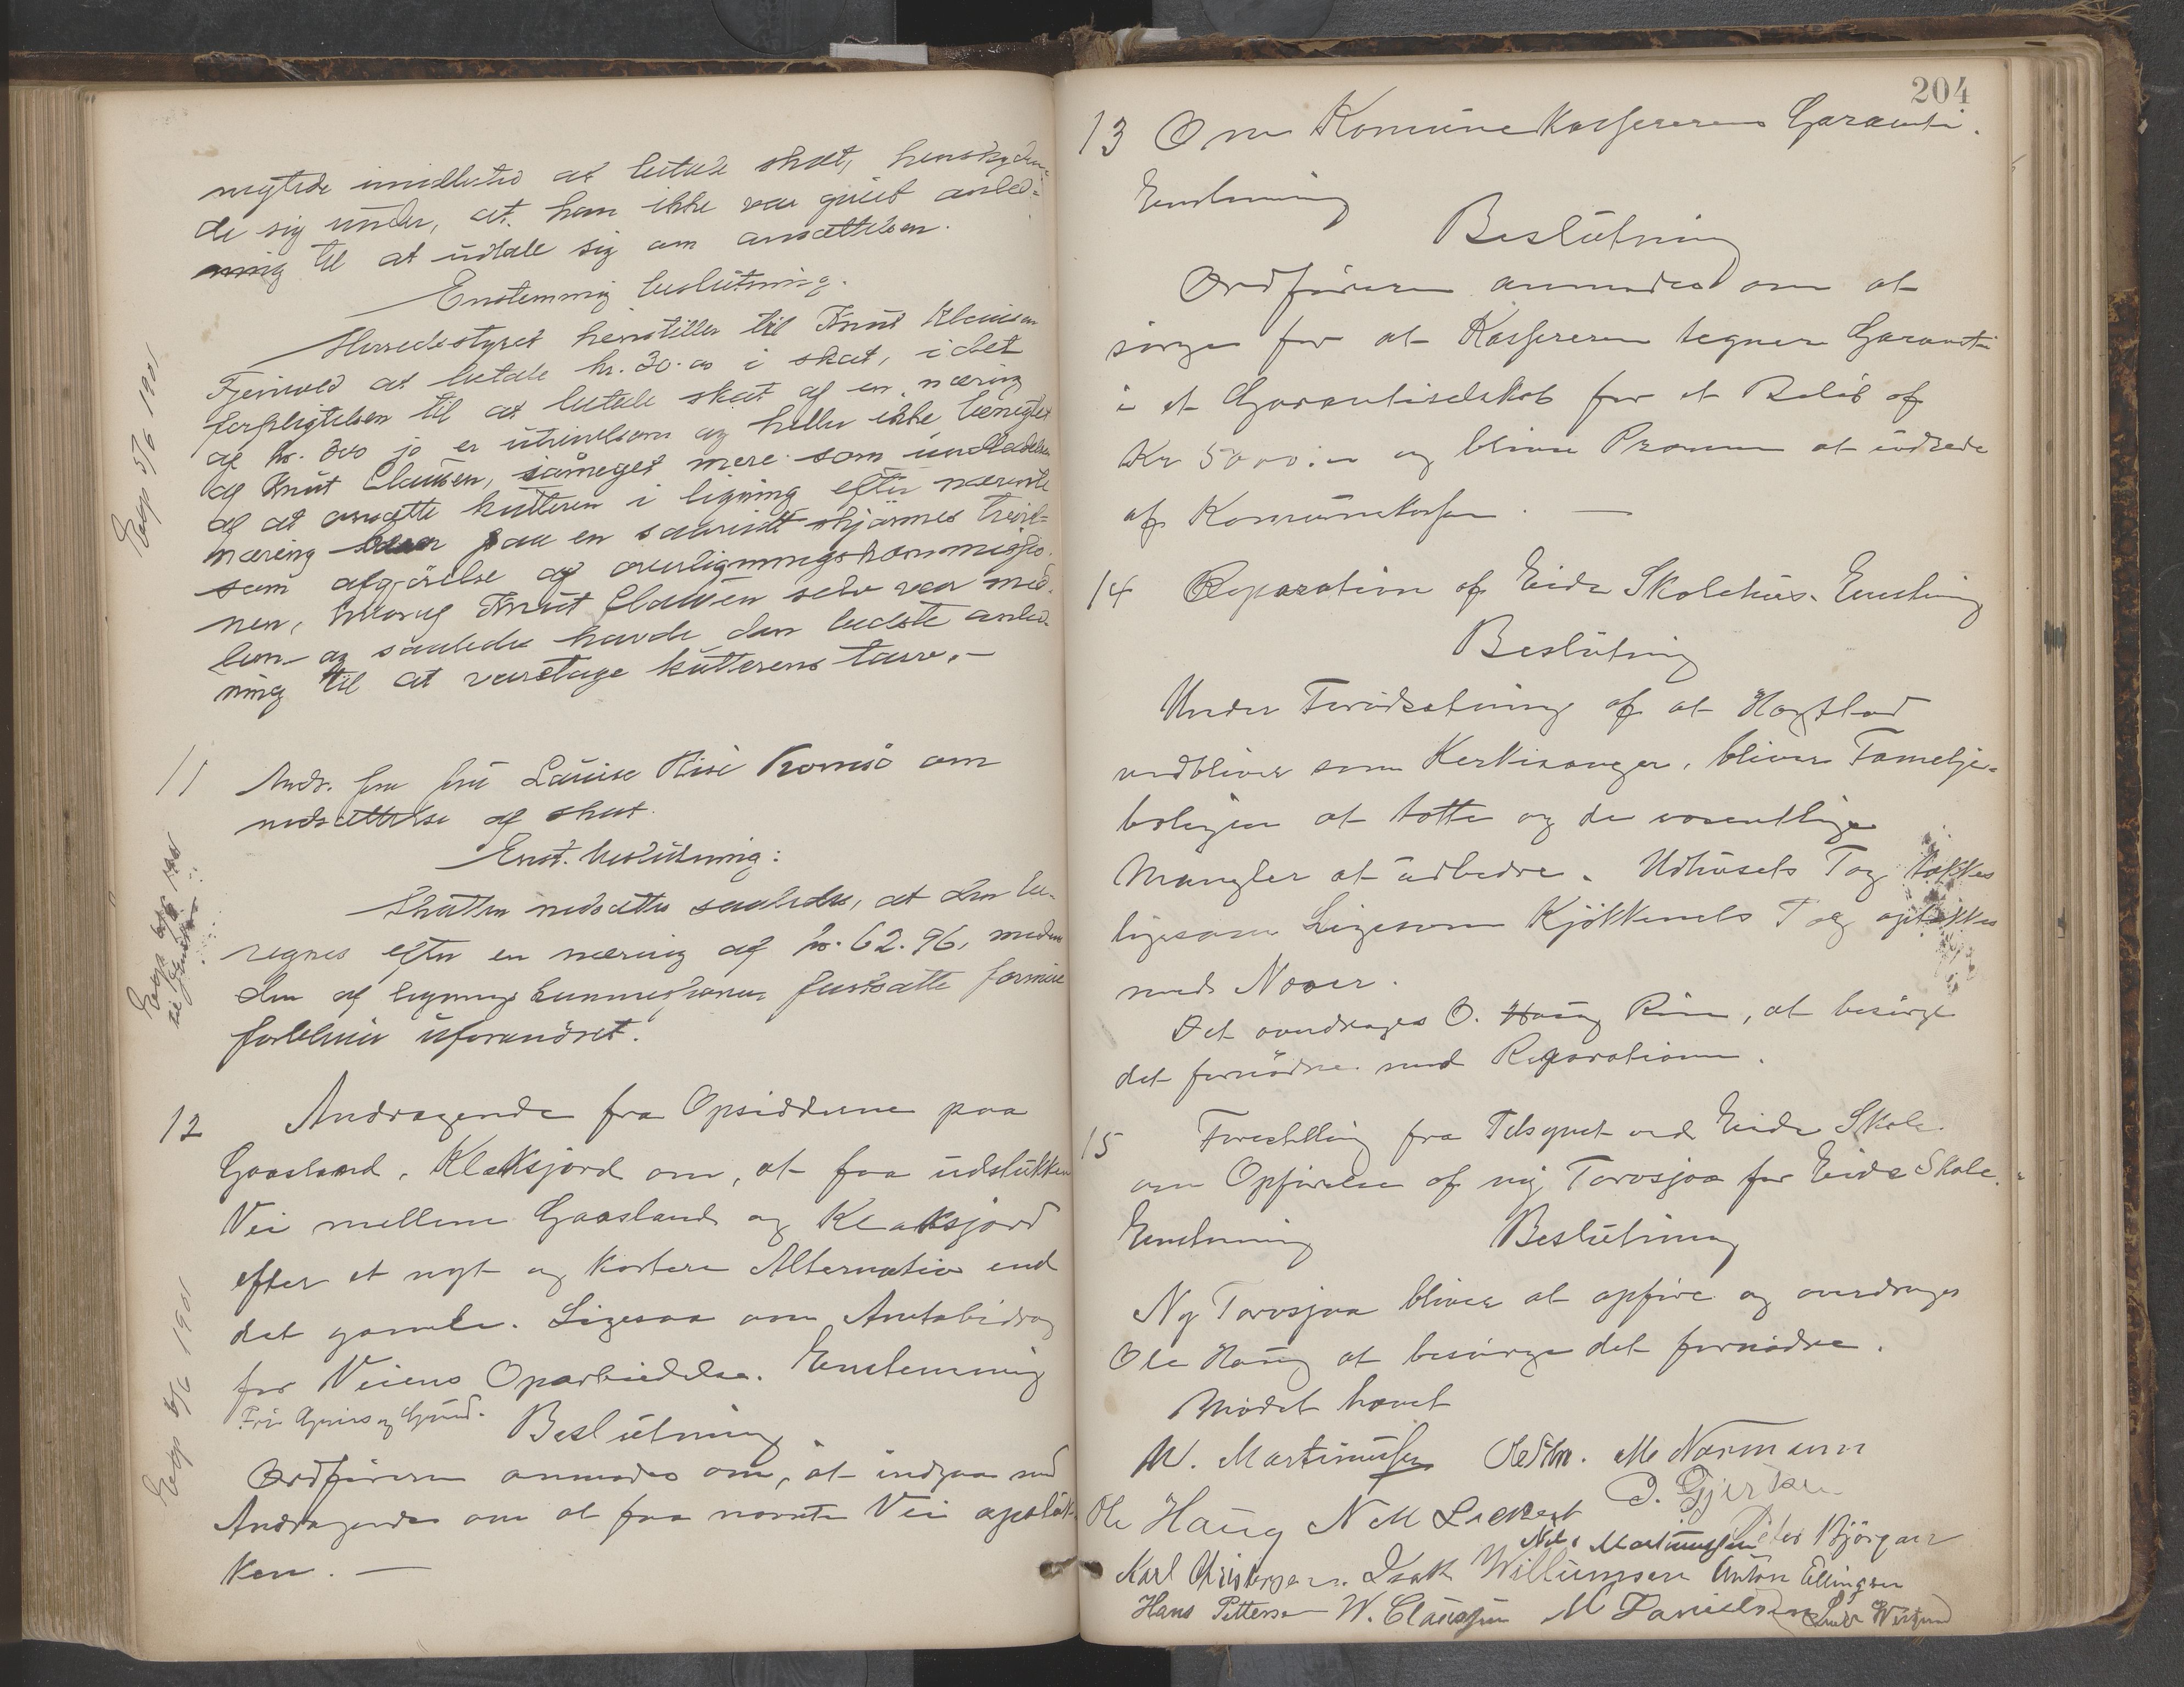 negtede imidlertid at betale skat, henskyden-
de sig under, at han ikke var givet anled-
ning til at udtale sig om ansættelsen.
Enstemmig beslutning.
Herredsstyret henstiller til Knut Klausen
Fjeinvold at betale kr. 30.00 i skat, idet
forpligtelsen til at betale skat af en næring
af kr. 300 jo er utvivlsom og heller ikke benegtet
af Knut Clausen, saameget mere som undladelsen
af at ansætte kutteren i ligning efter nævnte
næring beror paa en saavidt skjönnes tvivl-
som afgjörelse af overligningskommissio-
nen, hvoraf Knut Clausen selv var med-
lem og saaledes havde den bedste anled-
ning til at varetage kutterens tarv.-
Exp 5/6 1901
11 Andr. fra fru Louise Riise Tromsö om
nedsættelse af skat.
Enst. beslutning:
Skatten nedsættes saaledes, at den be-
regnes efter en næring af kr. 62.96, meden
den af ligningskommissionen fastsatte formue
forbliver uforandret.
12 Andragende fra Opsidderne paa
Gaasland, Klaksjord om, at faa udstukken
Vei mellem Gaasland og Klaksjord
efter et nyt og kortere Alternativ end
det gamle. Ligesaa om Amtsbidrag
for Veiens Oparbeidelse. Enstemmig
Fri Grus og Grund. Beslutning
Ordföreren anmodes om, at indgaa med
Andragende om at faa nævnte Vei opstuk-
ken. —
Exp 5/6 1901
204
13 Om Komunekassererens Garanti.
Enstemmig
Beslutning
Ordföreren anmodes om at
sörge for at Kassereren tegner Garanti
i et Garantiselskab for et Belöb af
Kr 5000.00 og bliver Præmien at udrede
af Komunekassen. —
14 Reparation af Eide Skolehus. Enstemmig
Beslutning
Under Forudsætning af at Hogstad
vedbliver som Kirkesanger, bliver Familje-
boligen at tætte og de væsentlige
Mangler at udbedre. Udhusets Tag tækkes
ligesom Ligesom Kjökkenets Tag optækkes
med Næver.
Det overdrages O. Haug Rise, at besörge
det fornödne med Reparationen.
15 Forestilling fra Tilsynet ved Eide Skole
om Opförelse af ny Torvsjaa for Eide Skole.
Enstemmig Beslutning
Ny Torvsjaa bliver at opföre og overdrages
Ole Haug at besörge det fornödne.
Mödet hævet
M. Martinussen Ordfm. M. Normann
Ole Haug N M Lockert J. Gjertsen
Nils Martinussen Peter Björgan
Karl Christensen. Isak Willumsen Anton Ellingsen
Hans Pettersen W. Claussen M Danielsen